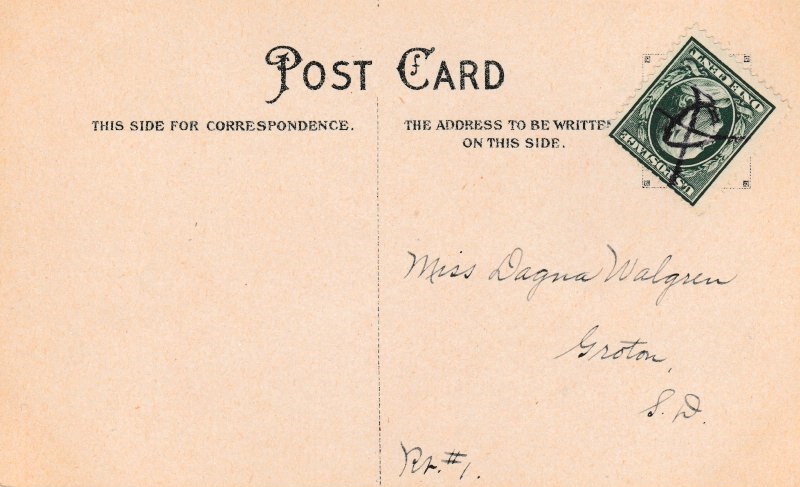 POST CARD
THIS SIDE FOR CORRESPONDENCE.
THE ADDRESS TO BE WRITTEN
ON THIS SIDE.
U.S. POSTAGE
ONE CENT
Miss Dagna Walgren
Groton,
S. D.
Rt. #1.